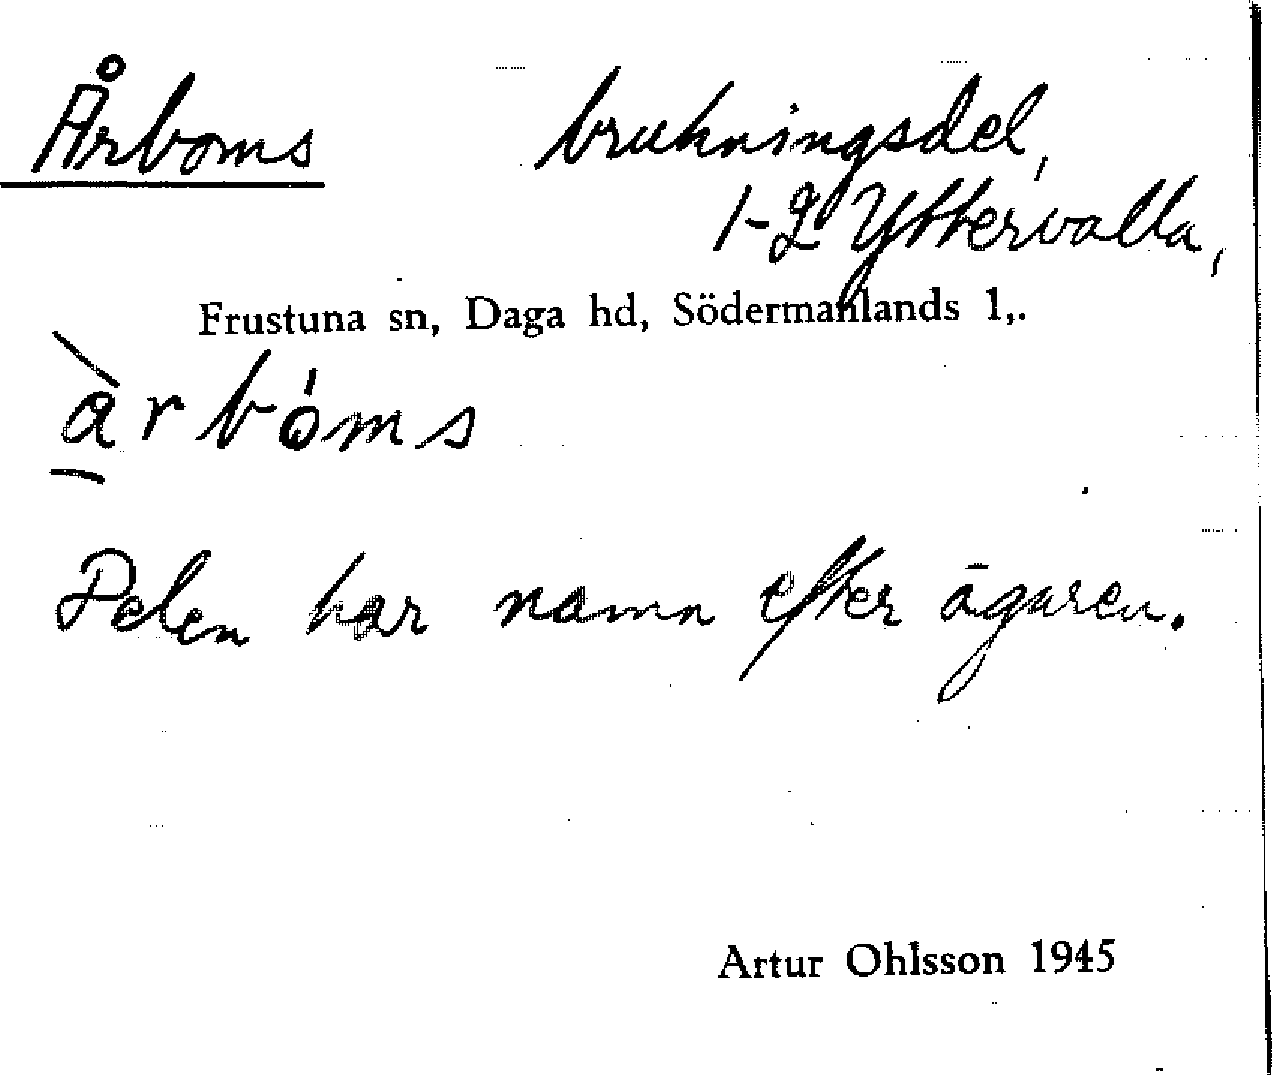 Årboms brukningsdel,
1-2 Yttervalla,
Frustuna sn, Daga hd, Södermanlands l,.
àrbóms
Delen har namn efter ägaren.
Artur Ohlsson 1945